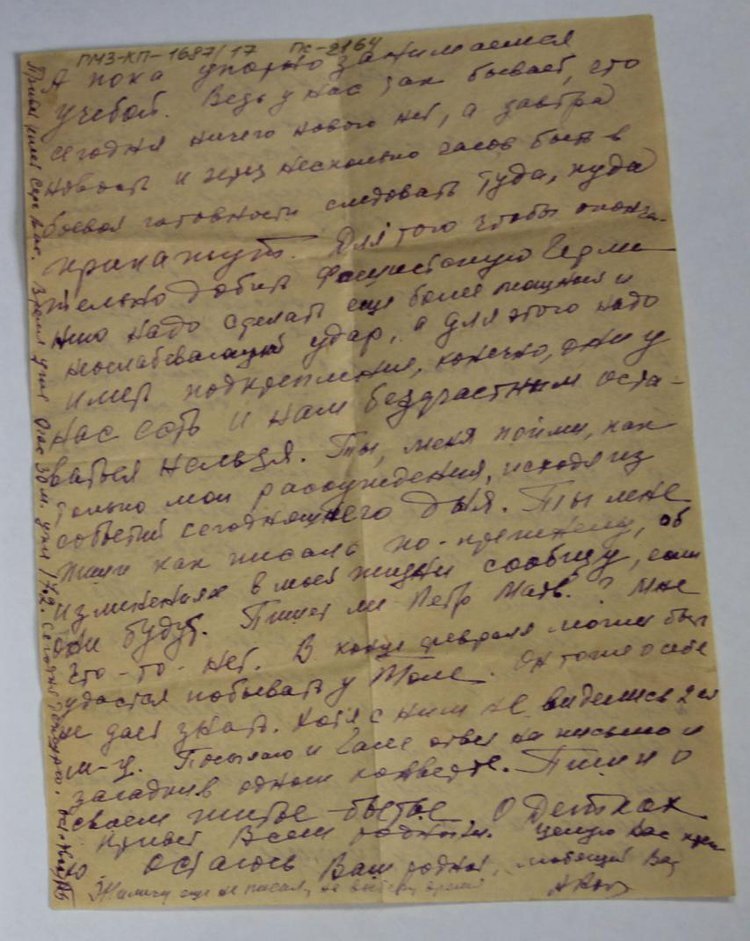 ПМЗ-КП-1687/17 ПС-2164
А пока упорно занимаемся
учебой. Ведь у нас так бывает, что
сегодня ничего нового нет, а завтра
новость и через несколько часов быть в
боевой готовности следовать туда, куда
прикажут. Для того чтобы оконча-
тельно добить фашистскую Герма
нию надо сделать еще более мощный и
неослабевающий удар, а для этого надо
иметь подкрепления, конечно, они у
нас есть и нам безучастным оста-
ваться нельзя. Ты, меня пойми, как
только мои рассуждения, исходя из
событий сегодняшнего дня. Ты мне
пиши как писала по-прежнему, об
изменениях в моей жизни сообщу, если
они будут. Пишет ли Петр Матв.? Мне
что-то нет. В конце февраля может быть
удастся побывать у Толи. Он тоже о себе
не дает знать. Хотя с ним не виделись 2
м-ц. Посылаю и Гале ответ на письмо и
в одном конверте. Пиши о
своем житье-бытье, о детках
Привет всем родным. Целую вас креп
ко. Остаюсь Ваш родной, любящий Вас
еще не писал, не выберу время